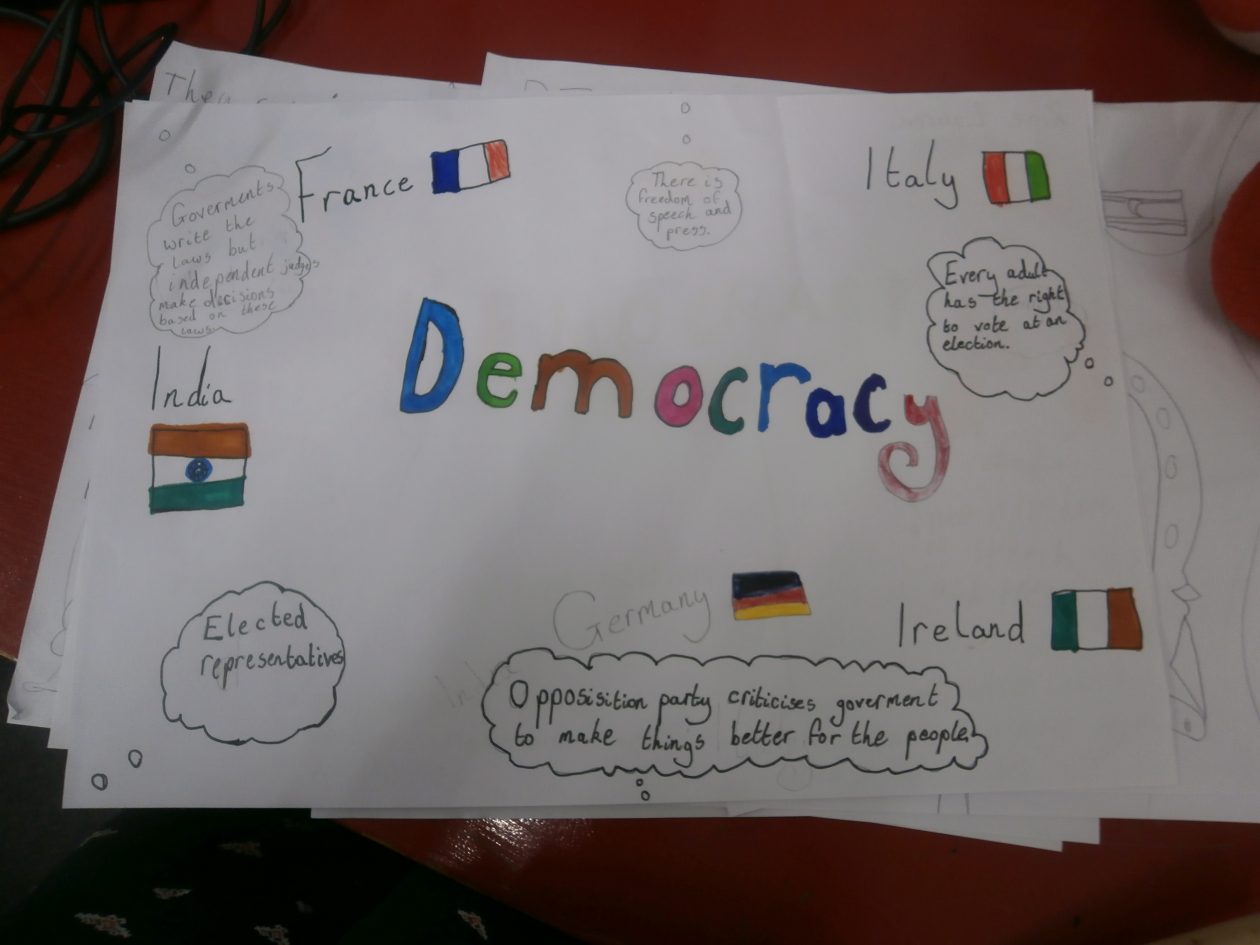 They
France
Italy
Goverments
write the
laws but
independent judges
make decisions
based on these
laws.
There is
freedom of
speech and
press.
Every adult
has the right
to vote at an
election.
Democracy
India
Germany
Ireland
Elected
representatives
Opposisition party criticises goverment
to make things better for the people.